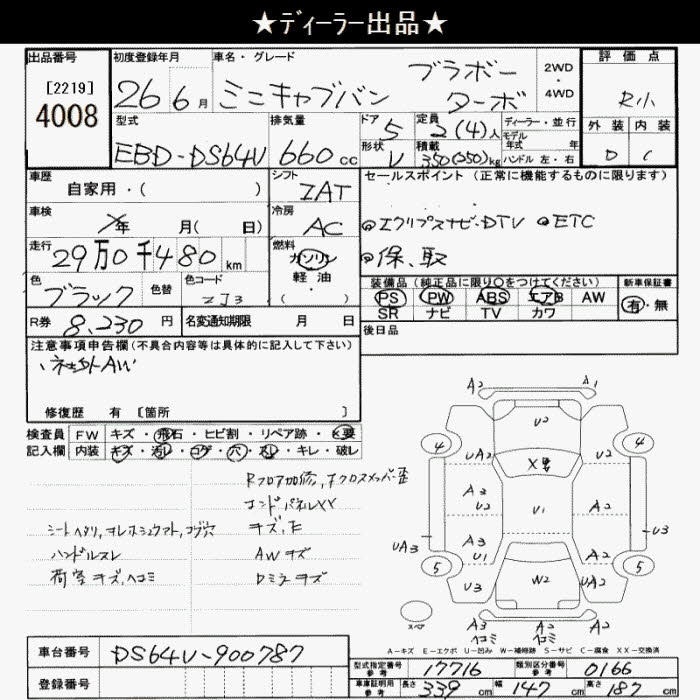 ★ディーラー出品★
出品番号
[2219]
4008
初度登録年月
26年 6月
車名・グレード
ミニキャブバン
ブラボー
ターボ
2WD
・
4WD
評価点
R小
外装 内装
D C
型式
EBD-DS64V
排気量
660 cc
ドア
5
形状
V
定員
2(4)人
積載
350(250)kg
ディーラー・並行
モデル
年式 年
ハンドル 左・右
車歴
自家用・( )
シフト
IAT
車検
年 月( 日)
冷房
AC
走行
29万0千480 km
燃料
ガソリン
軽油
・
( )
色
ブラック
色替
色コード
R券
8,230 円
名変通知期限 月 日
セールスポイント (正常に機能するものに限ります)
エクリプスナビ・DTV ETC
保、取
装備品 (純正品に限り○をつけてください)
PS PW ABS エアB AW
SR ナビ TV カワ
新車保証書
有・無
後日品
注意事項申告欄(不具合内容等は具体的に記入して下さい)
社外AW
修復歴 有 [箇所 ]
検査員 FW キズ・飛石・ヒビ割・リペア跡・X要
記入欄 内装 キズ・汚レ・コゲ・穴・スレ・キレ・破レ
Rフロア加修,Fクロスメンバー歪
エンドパネルXX
キズ,E
シートヘタリ,ヨレ
ハンドルスレ
AWキズ
荷室キズ,ヘコミ
Dミラーキズ
A2 A1
U2
4 4
UA2 A2
X要
A3
U2
U1
A2
A3
U1
A2
UA3
U3
5 5
U3
W2
UA2
A2 A2 A2
ヘコミ ヘコミ
スペア
A-キズ E-エクボ U-凹み W-補修跡 S-サビ C-腐食 XX-交換済
車台番号
DS64V-900787
登録番号
型式指定番号
参考
17716
類別区分番号
参考
0166
車庫証明用
参考
長さ 339 cm 幅 147 cm 高さ 187 cm